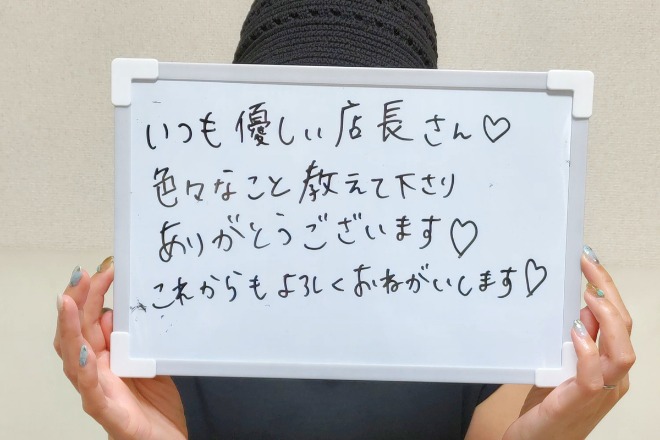 いつも優しい店長さん♡
色々なこと教えて下さり
ありがとうございます♡
これからもよろしくおねがいします♡